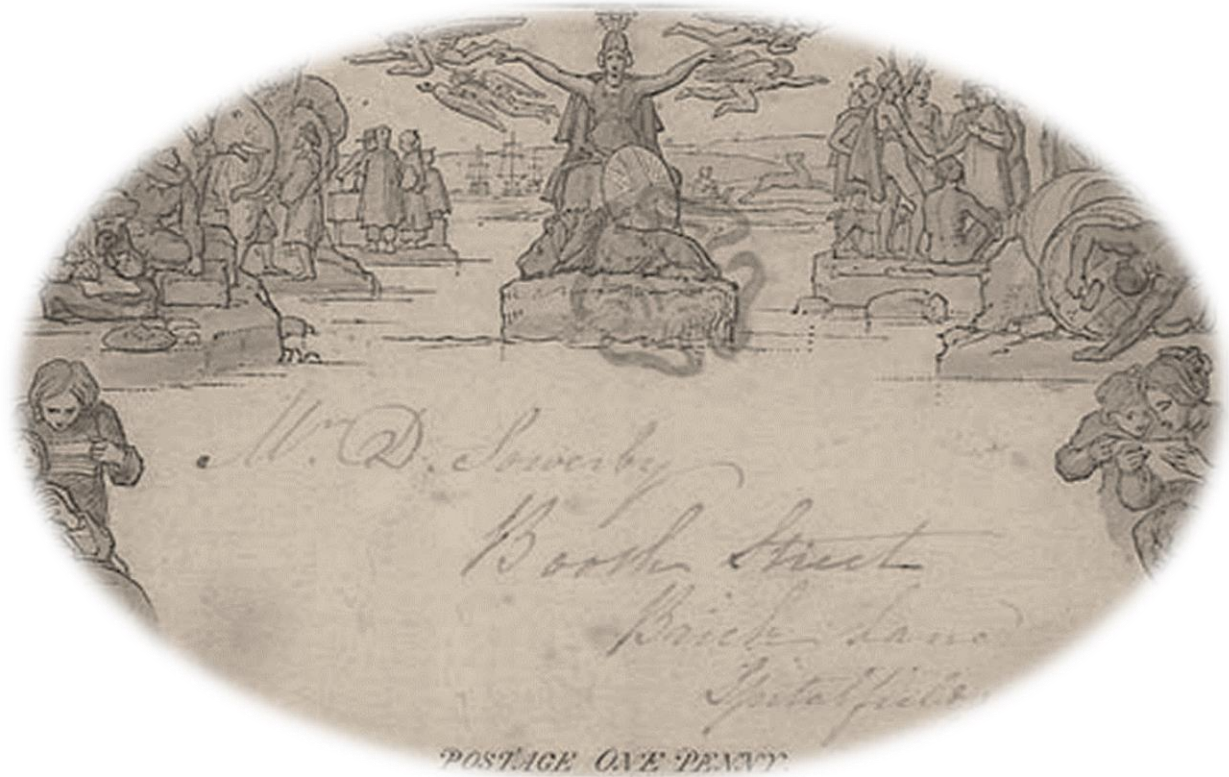 Mr. D. Sowerby
Booth Street
Brick Lane
Spitalfields
POSTAGE ONE PENNY.